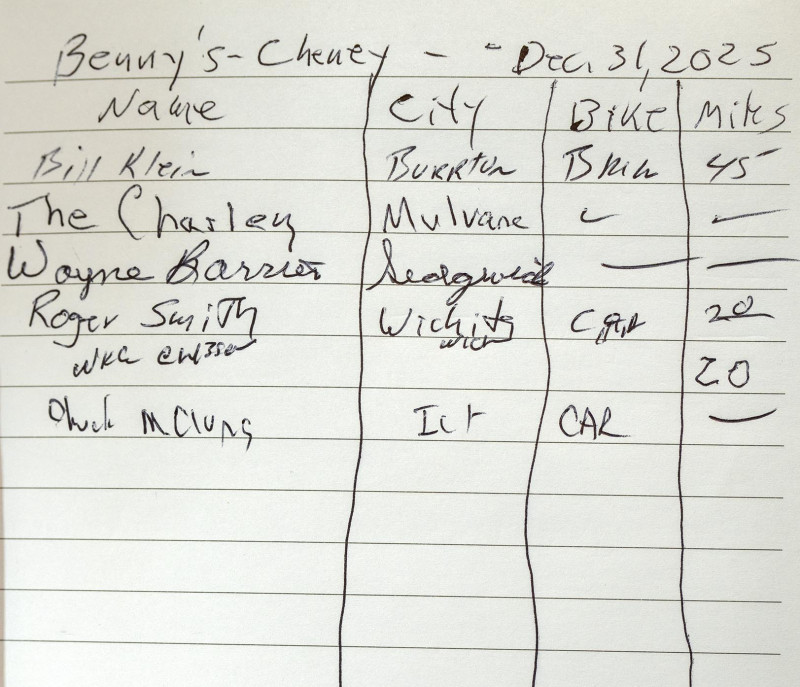 Benny's - Cheney - - Dec. 31, 2025
Name City Bike Miles
Bill Klein Burrton 45
The Charley Mulvane
Wayne Barrier Sedgwick
Roger Smith Wichita Car 20
wich 20
Chuck McClung Ict CAR